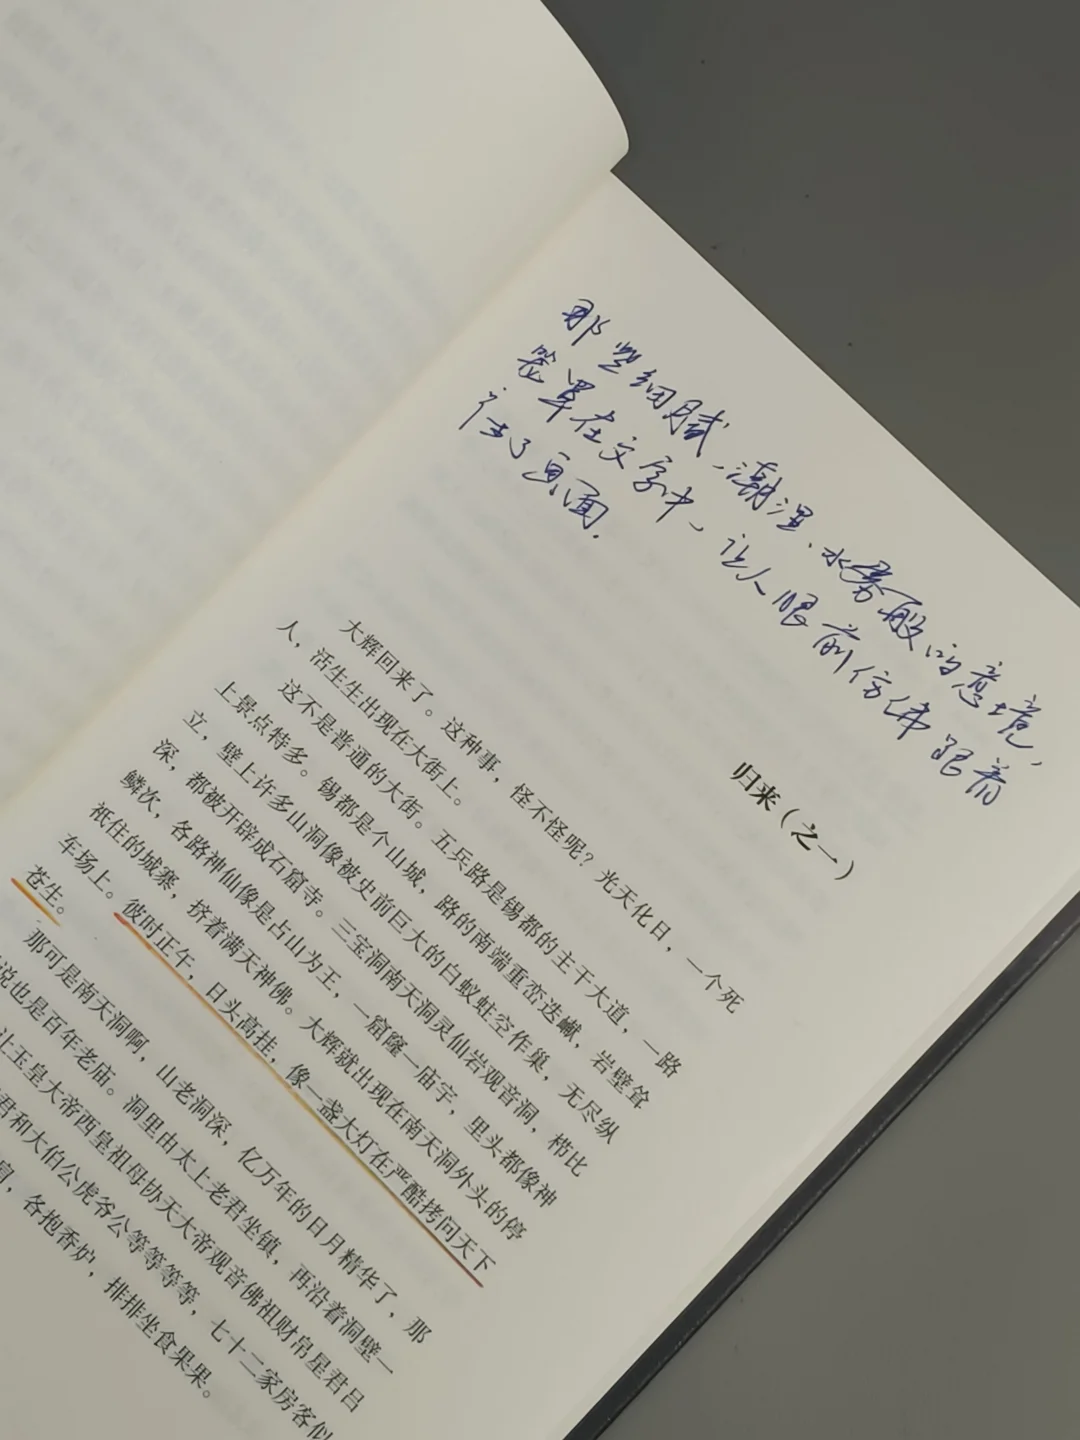 那些细腻、潮湿、水雾般的意境，
笼罩在文字中，让人眼前仿佛跟着
有了画面.
归来（之一）
大辉回来了。这种事，怪不怪呢？光天化日，一个死
人，活生生出现在大街上。
这不是普通的大街。五兵路是锡都的主干大道，一路
上景点特多。锡都是个山城，路的南端重峦迭巘，岩壁耸
立，壁上许多山洞像被史前巨大的白蚁蛀空作巢，无尽纵
深，都被开辟成石窟寺。三宝洞南天洞灵仙岩观音洞，栉比
鳞次，各路神仙像是占山为王，一窟窿一庙宇，里头都像神
祇住的城寨，挤着满天神佛。大辉就出现在南天洞外头的停
车场上。彼时正午，日头高挂，像一盏大灯在严酷拷问天下
苍生。
那可是南天洞啊，山老洞深，亿万年的日月精华了，那
说也是百年老庙。洞里由太上老君坐镇，再沿着洞壁一
让玉皇大帝西皇祖母协天大帝观音佛祖财帛星君吕
君和大伯公虎爷公等等等等，七十二家房客似
，各抱香炉，排排坐食果果。